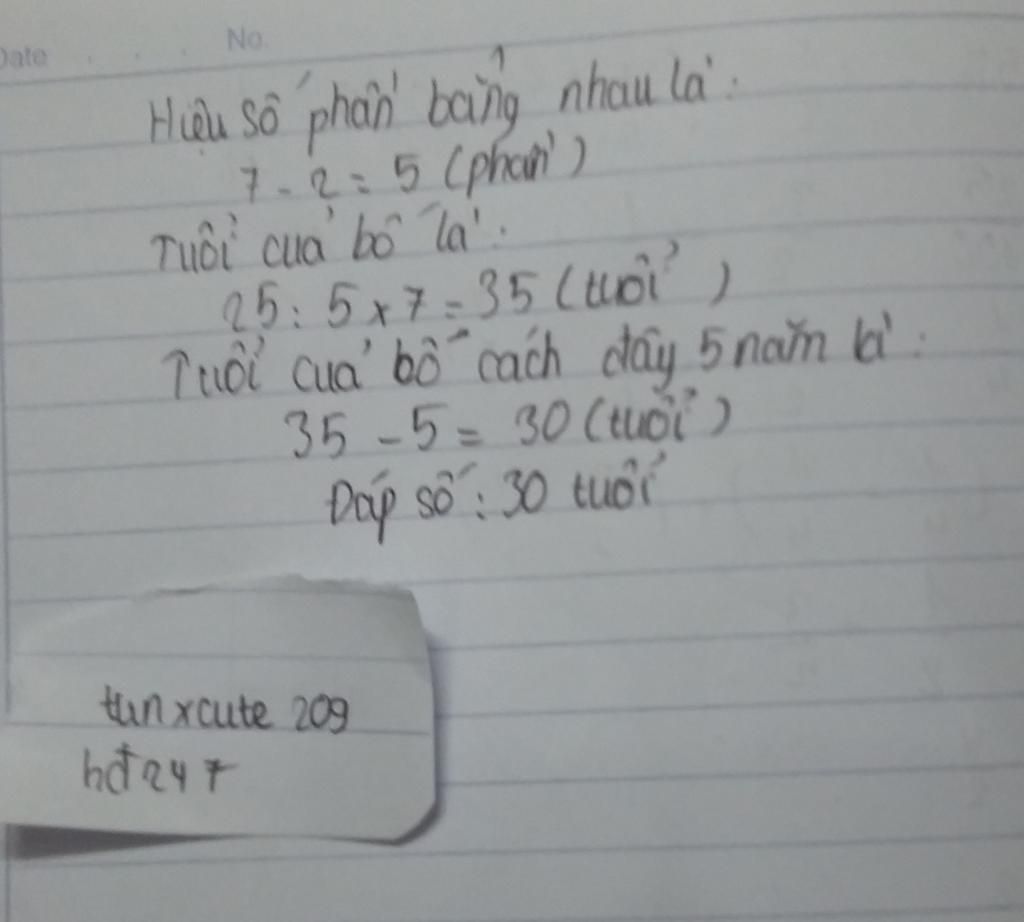 Date No.
Hiệu số phần bằng nhau là:
7 - 2 = 5 (phần)
Tuổi của bố là:
25 : 5 x 7 = 35 (tuổi)
Tuổi của bố cách đây 5 năm là:
35 - 5 = 30 (tuổi)
Đáp số : 30 tuổi
tun xcute 209
hđ 247